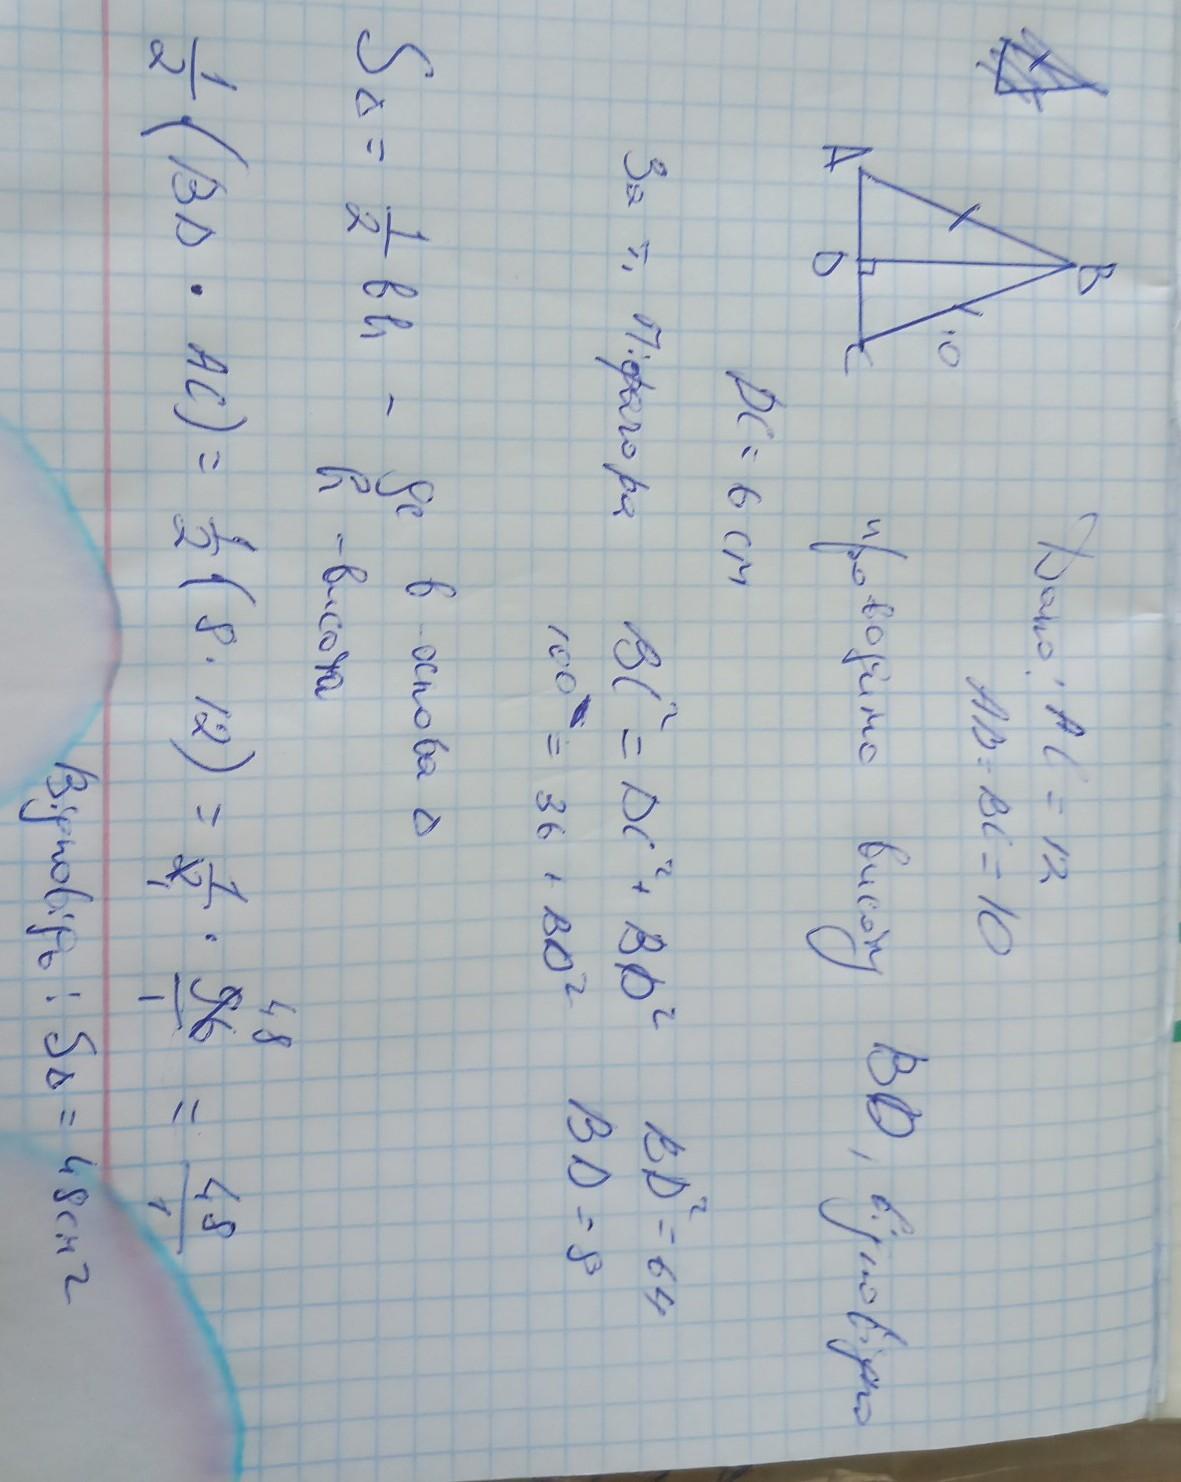 Дано: AC = 12
AB = BC = 10
A
B
C
D
10
проводимо висоту BD, відповідно
DC = 6 см
За т. Піфагора BC² = DC² + BD² BD² = 64
100 = 36 + BD² BD = 8
S∆ = 1/2 bh - де b - основа ∆
h - висота
1/2 (BD · AC) = 1/2 (8 · 12) = 1/2 · 96/1 = 48/1
1
48
Відповідь: S∆ = 48 см²